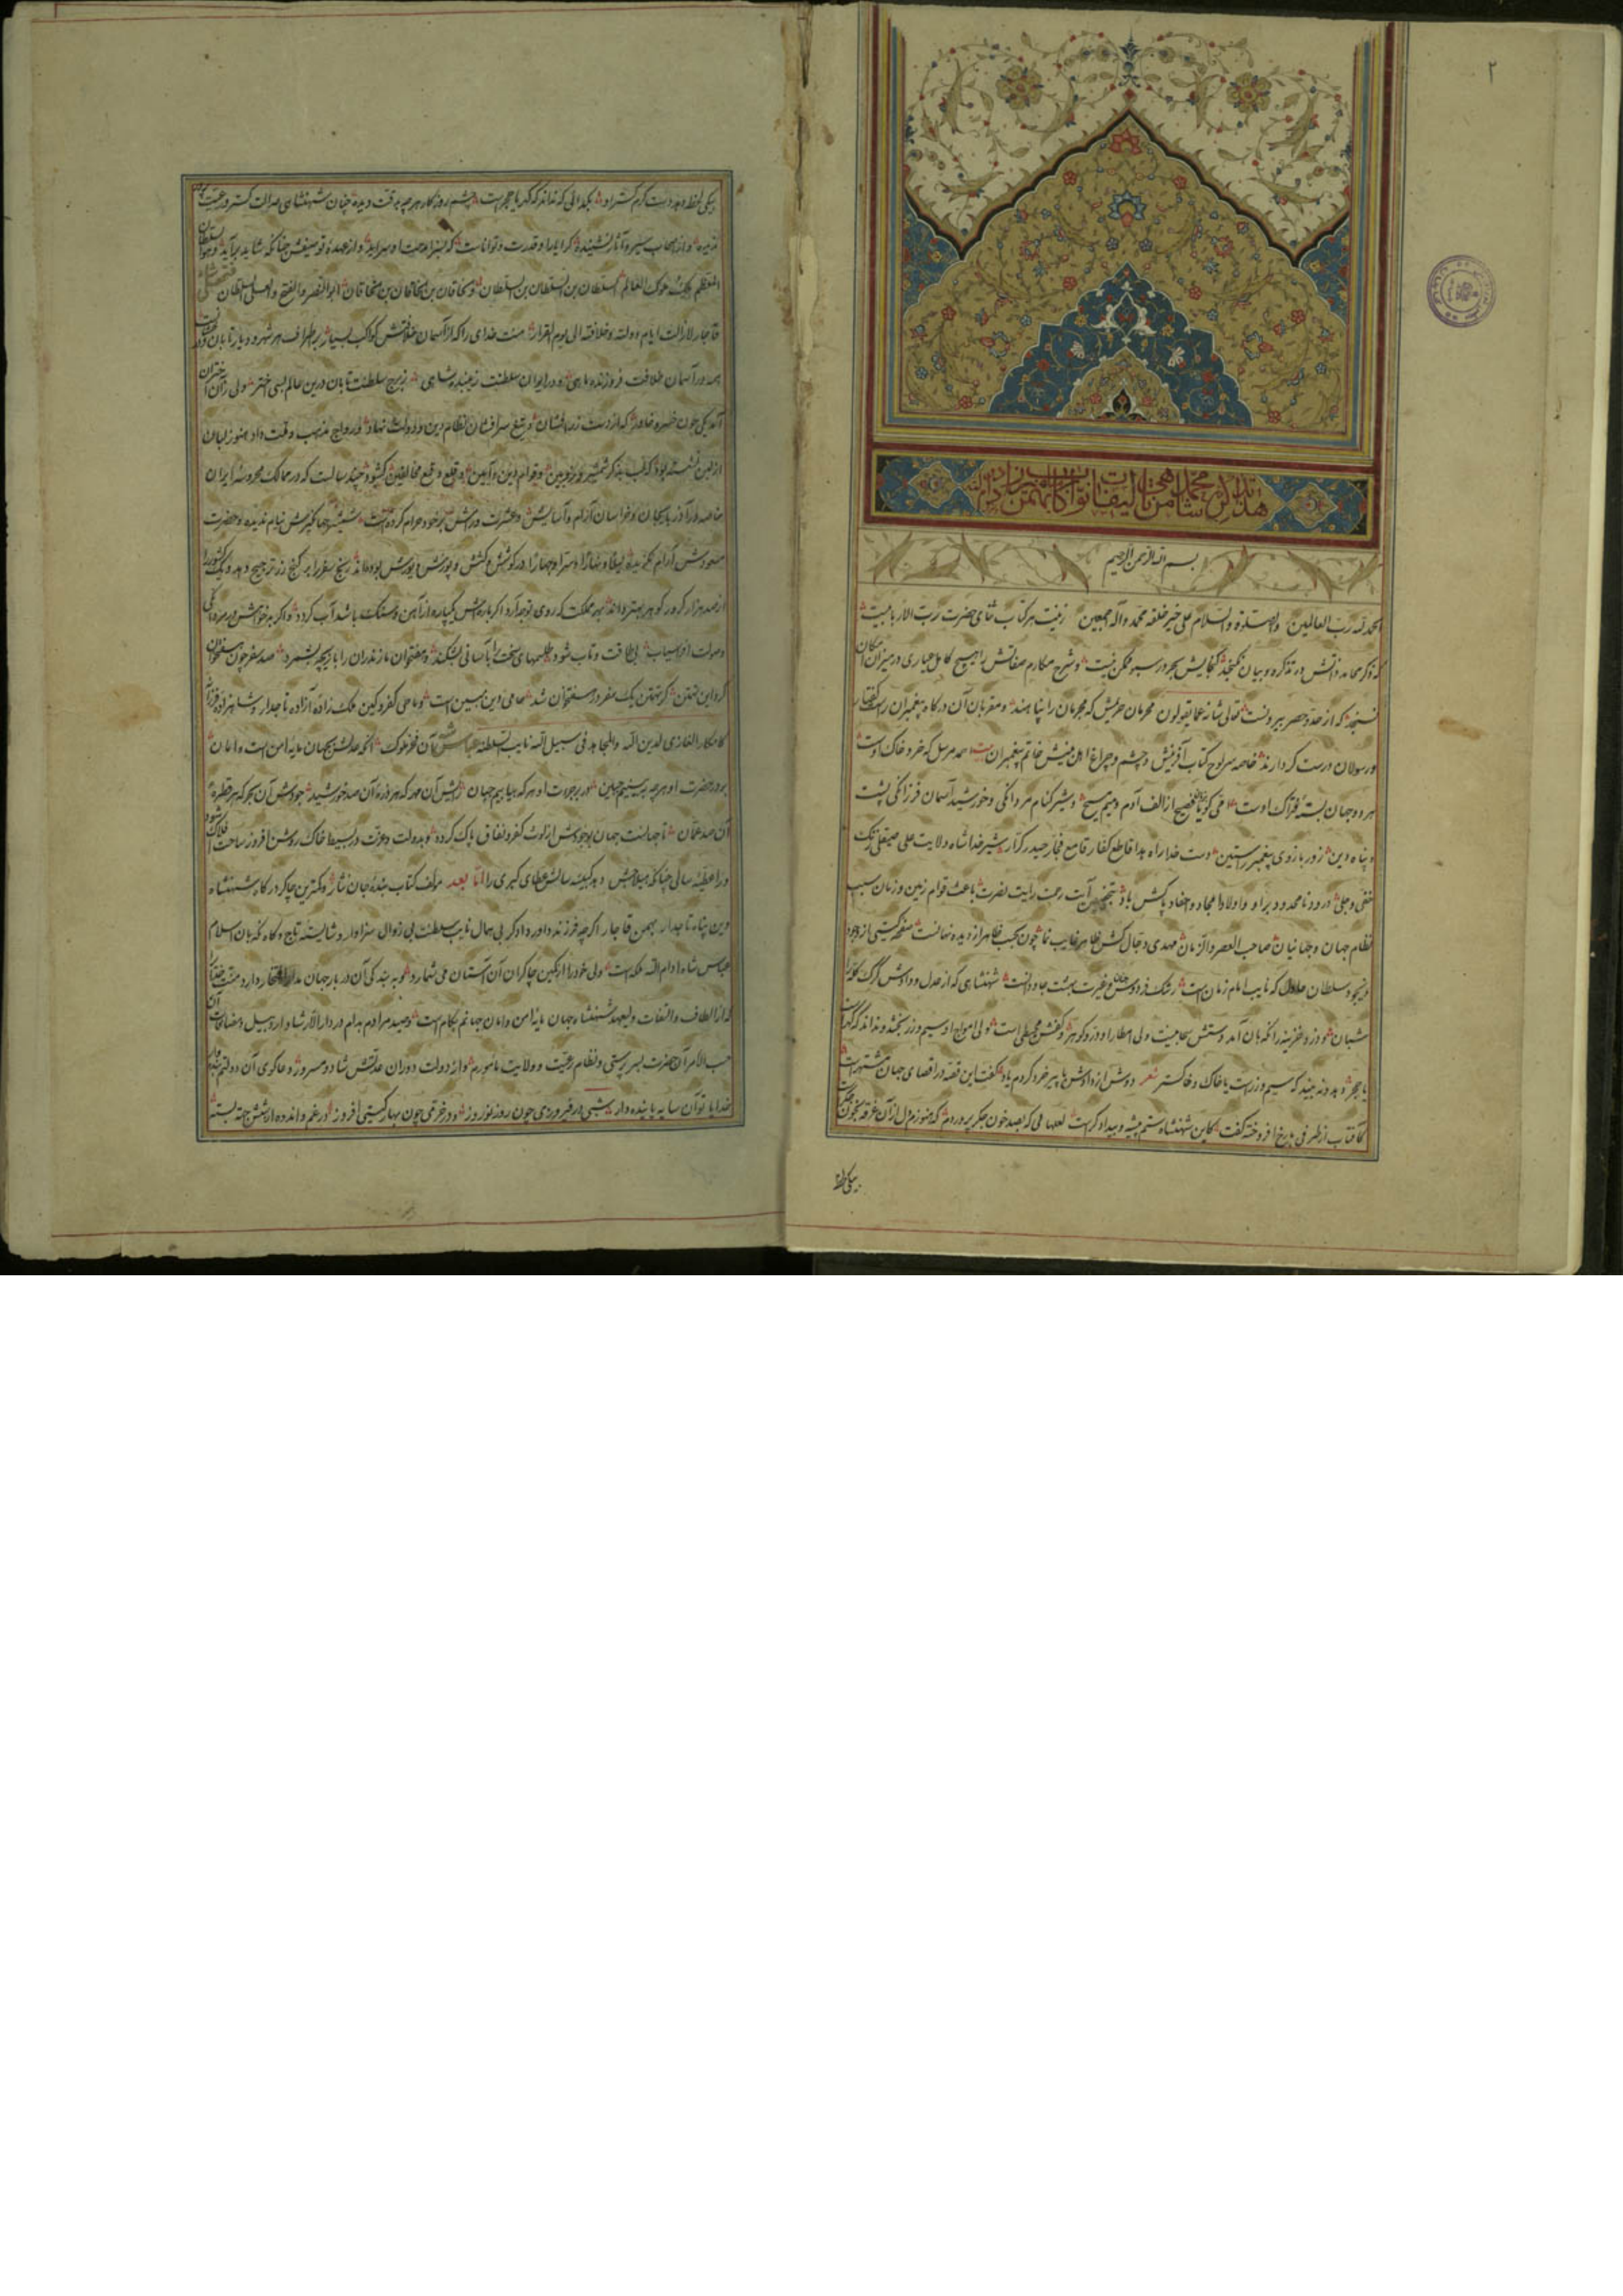 ۲
هذا تذکره محمدشاهی من تألیفات نواب بهمن میرزا دام
بسم الله الرحمن الرحیم
الحمد لله رب العالمین والصلوة والسلام علی خیر خلقه محمد وآله اجمعین زینت هر کتاب ثنای حضرت رب الاربابیست
که ذکر محامد ذاتش در تذکره و بیان نگنجد گنجایش بحر در سبو ممکن نیست و شرح مکارم صفاتش را هیچ کامل عیاری در میزان امکان
نسنجد که از حد و حصر بیرونست تعالی شانه عما یقولون محرمان حریمش که مجرمان را پناهند و مقربان آن درگاه پیغمبران راست گفتار
و رسولان درست کردارند خاصه سر لوح کتاب آفرینش و چشم و چراغ اهل بینش خاتم پیغمبران احمد مرسل که خرد خاک اوست
هر دو جهان بستهٔ فتراک اوست می گویا فصیح از الف آدم و میم مسیح و شیر کنام مردانگی و خورشید آسمان فرزانگی پشت
و پناه دین زور بازوی پیغمبر راستین دست خدا راه هدا قاطع کفار قامع فجار حیدر کرار شیر خدا شاه ولایت علی صیقلی زنک
خفی و جلی درود نامحدود بر او و اولاد امجاد و احفاد پاکش باد آیت رحمت رایت نصرت باعث قوام زمین و زمان سبب
نظام جهان و جهانیان صاحب العصر والزمان مهدی دجال کش ظاهر غایب نما چون بحجب ظاهر از دیده نهانست صفحه گیتی از وجود
سلطان عادل که نایب امام زمان است رشک فردوس و غیرت بهشت جاودانست شهنشاهی که از عدل و دادش گرگ گله را
شبان و دزد خزینه را نگهبان آمد دستش سحابیست ولی امطار او در و گوهر و کفش محیطی است ولی امواج او سیم و زر بخشد و نداند که گهر است
یا حجر و بدهد و نه بیند که سیم و زر است یا خاک و خاکستر شعر دوش از دادش با پیر خرد کردم یاد گفت این قصه در اقصای جهان مشتهر است
کافتاب از طرفی بر رخ افروخته گفت کاین شهنشاه ستم پیشه و بیدادگر است لعلهائی که بصد خون جگر پروردم که هنوزم دل از آن غرقه بخون جگر است
بیکی لحظه
بیکی لحظه دهد دست کرم گستر او بگدائی که نداند که گهر یا حجر است چشم روزگار هر چه بدقت دیده چنان شهنشاهی عدالت گستر و رعیت پرور
ندیده و از اصحاب سیر و آثار نشنیده کرا یارا و قدرت و تواناست که بسزا مدحت او سراید و از عهدهٔ توصیفش چنانکه شاید برآید و هو السلطان
الاعظم ملک ملوک العالم السلطان بن السلطان بن السلطان و الخاقان بن الخاقان بن الخاقان ابو النصر والفتح والعلی السلطان فتحعلی شاه
قاجار لازالت ایام دولته و خلافته الی یوم القرار منت خدای را که از آسمان خلافتش کواکب بسیار بر اطراف هر شهر و دیار تابان
بهر دور آسمان خلافت فروزنده ماهی و در ایوان سلطنت زیبنده شاهی ز برج سلطنت تابان درین عالم بسی اختر ولی زان اختران
آمد یکی چون خسرو خاور که از دست زرافشان و تیغ سرافشان نظام دین و دولت نهاد و رواج مذهب و ملت داد هنوز لبان
از لبن نشسته بود که لب بذکر شمشیر و زوبین و قوام دین و آیین و قلع و قمع مخالفین گشود چند سالست که در ممالک محروسه ایران
خاصه در آذربایجان و خراسان آرام و آسایش و عشرت و رامش بر خود حرام کرده است شمشیر جهانگیرش نیام ندیده و حضرت
مسعودش آرام نگزیده لیلا و نهارا و سرا و جهارا در کوشش و کشش و پویش و یورش بوده رنج سفر را بر گنج زر ترجیح دهد و یک کشور را
از صد هزار کرور گوهر بهتر داند بهر مملکت که روی توجه آرد اگر باره اش یکپاره از آهن و سنگ باشد آب گردد و اگر بدخواهش در مردانگی
و صولت افراسیاب بی طاقت و تاب شود طلسمهای سخت را بآسانی بشکند و هفتخوان مازندران را بازیچه شمرد صد سفر چون هفتخوان
کرد این تهمتن گر تهمتن یک سفر در هفتخوان شد حامی دین مبین است و ماحی کفر و کین ملک زادهٔ آزاده تاجدار و شاهزاده فرزانه
کامکار الغازی لدین الله والمجاهد فی سبیل الله نایب السلطنه عباس شاه آن فخر ملوک آنکه عدلش بجهان مایه امن است و امان
بر در حضرت او هر چه ببینیم جبین در بر جودت او هر که بیابیم جهان رایش آن مهر که هر ذره آن صد خورشید جودش آن بحر که هر قطره
آن صد عمان تا جهانست جهان بوجودش از لوث کفر و نفاق پاک کرده و بدولت و عزت در بسیط خاک روشن افروز ساحت افلاک شود
ورا عطیه سالی چنانکه میلادش دهد کبیسه سالش عطای کبری را اما بعد مؤلف کتاب بندهٔ جان نثار و کمترین چاکر درگاه شهنشاه
دین پناه تاجدار بهمن قاجار اگرچه فرزند داور دادگر بی همال نایب سلطنت بی زوال سزاوار و شایسته تاج و گاه نگهبان اسلام
عباس شاه ادام الله ملکه است ولی خود را از کمین چاکران آن آستان می شمارد و به بندگی آن دربار جهان مدار افتخار دارد
که از الطاف و التفات ولیعهد شهنشاه جهان مایهٔ امن و امان جهانم بکام است و صید مرادم بدام در دار الارشاد اردبیل و مضافات آن
حسب الامر آن حضرت بسرپرستی و نظام رعیت و ولایت مامورم و از دولت دوران عدتش شاد و مسرور و دعاگوی آن دولتم
خدایا تو آن سایه پاینده دار شبی در فیروزی چون روز نوروز و در خرمی چون بهار گیتی افروز در غم و اندوه از شش جهت بسته